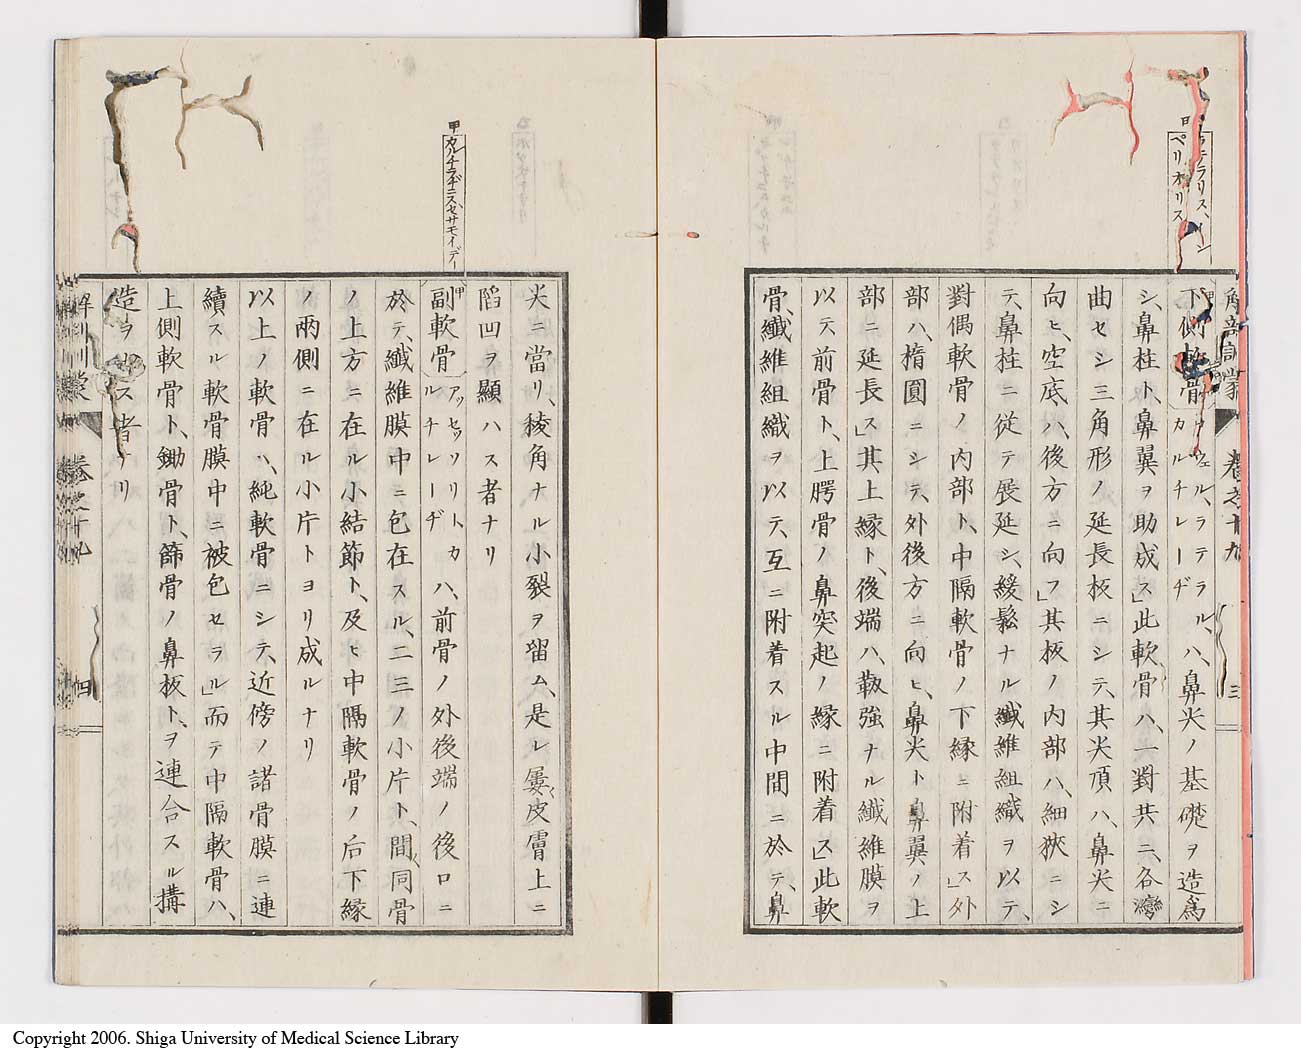 ラテラリス、イン
ペリオリス
解剖訓蒙 卷之十九 三
下側軟骨 ロウエル、ラテラル、カルチレーヂ ハ、鼻尖ノ基礎ヲ造爲
シ、鼻柱ト、鼻翼ヲ助成ス」此軟骨ハ、一對共ニ、各灣
曲セシ三角形ノ延長板ニシテ、其尖頂ハ、鼻尖ニ
向ヒ、空底ハ、後方ニ向フ」其板ノ內部ハ、細狹ニシ
テ、鼻柱ニ從テ展延シ、緩鬆ナル纖維組織ヲ以テ、
對偶軟骨ノ內部ト、中隔軟骨ノ下緣ニ附着ス」外
部ハ、橢圓ニシテ、外後方ニ向ヒ、鼻尖ト鼻翼ノ上
部ニ延長ス」其上緣ト、後端ハ、韌強ナル纖維膜ヲ
以テ前骨ト、上腭骨ノ鼻突起ノ緣ニ附着ス」此軟
骨、纖維組織ヲ以テ、互ニ附着スル中間ニ於テ、鼻
尖ニ當リ、稜角ナル小裂ヲ留ム、是レ屢皮膚上ニ
陷凹ヲ顯ハス者ナリ
甲 カルチラギニス、セサモイデー
副軟骨 アッセッソリト カルチレーヂ ハ、前骨ノ外後端ノ後ロニ
於テ、纖維膜中ニ包在スル、二三ノ小片ト、間同骨
ノ上方ニ在ル小結節ト、及ヒ中隔軟骨ノ后下緣
ノ兩側ニ在ル小片トヨリ成ルナリ
以上ノ軟骨ハ、純軟骨ニシテ、近傍ノ諸骨膜ニ連
續スル軟骨膜中ニ被包セラル」而テ中隔軟骨ハ、
上側軟骨ト、鋤骨ト、篩骨ノ鼻板ト、ヲ連合スル搆
造ラ ス者ナリ
解剖訓蒙 卷之十九 四
Copyright 2006. Shiga University of Medical Science Library